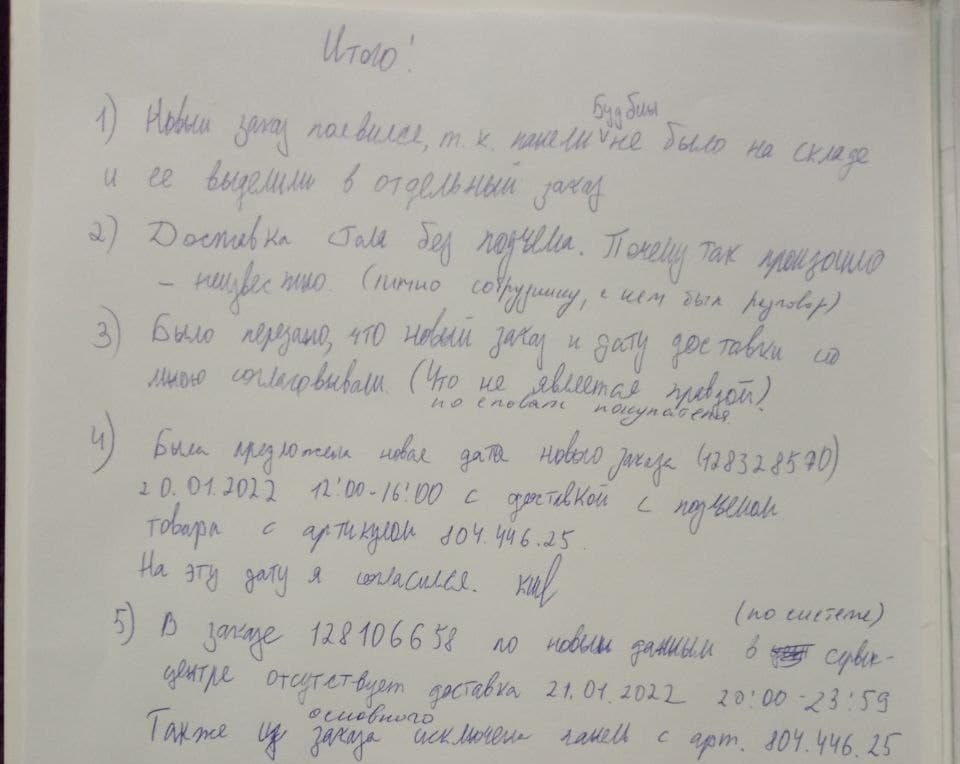 Итого!
1) Новый заказ появился, т. к. панели Будбин не было на складе
и ее выделили в отдельный заказ
2) Доставка стала без подъема. Почему так произошло
– неизвестно. (лично сотруднику, с кем был разговор)
3) Было передано, что новый заказ и дату доставки со
мною согласовывали. (Что не является правдой)
по словам покупателя
4) Была предложена новая дата нового заказа (128328570)
20.01.2022 12:00-16:00 с доставкой с подъемом
товара с артикулом 804.446.25.
На эту дату я согласился.
(по системе)
5) В заказе 128106658 по новым данным в сервис-
центре отсутствует доставка 21.01.2022 20:00-23:59
Также из основного заказа исключена панель с арт. 804.446.25